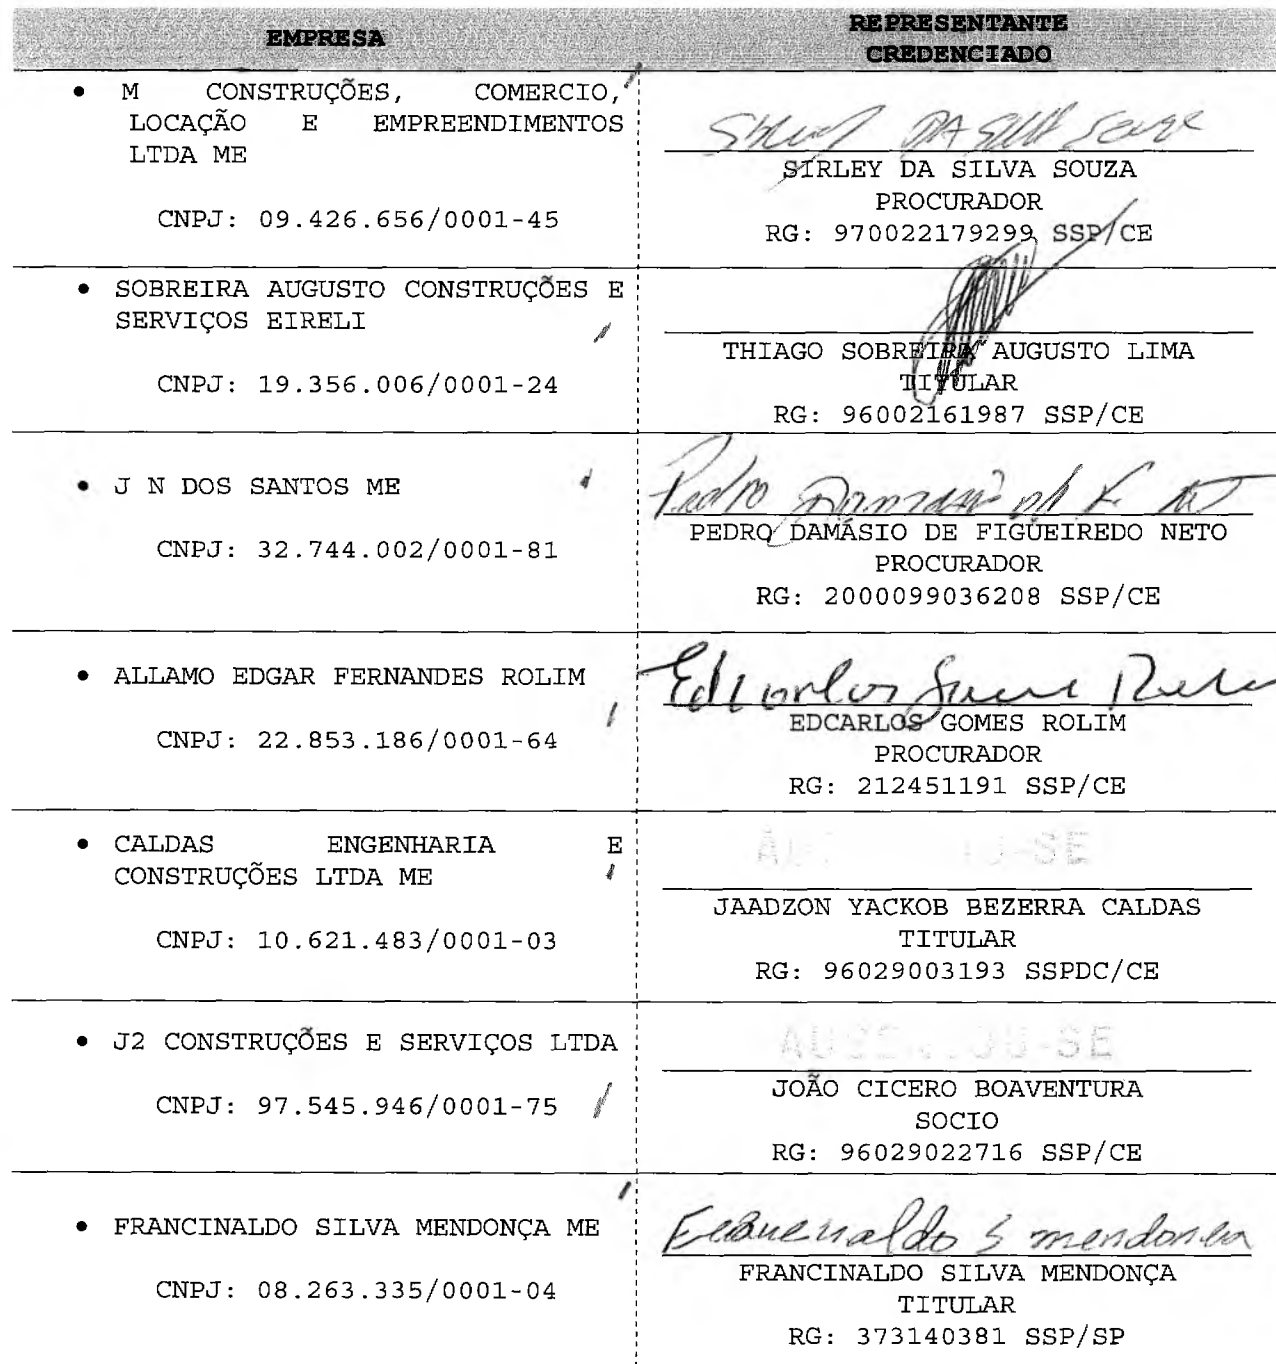 EMPRESA
REPRESENTANTE
CREDENCIADO
• M CONSTRUÇÕES, COMERCIO,
LOCAÇÃO E EMPREENDIMENTOS
LTDA ME
CNPJ: 09.426.656/0001-45
SIRLEY DA SILVA SOUZA
PROCURADOR
RG: 970022179299 SSP/CE
• SOBREIRA AUGUSTO CONSTRUÇÕES E
SERVIÇOS EIRELI
CNPJ: 19.356.006/0001-24
THIAGO SOBREIRA AUGUSTO LIMA
TITULAR
RG: 96002161987 SSP/CE
• J N DOS SANTOS ME
CNPJ: 32.744.002/0001-81
PEDRO DAMÁSIO DE FIGUEIREDO NETO
PROCURADOR
RG: 2000099036208 SSP/CE
• ALLAMO EDGAR FERNANDES ROLIM
CNPJ: 22.853.186/0001-64
EDCARLOS GOMES ROLIM
PROCURADOR
RG: 212451191 SSP/CE
• CALDAS ENGENHARIA E
CONSTRUÇÕES LTDA ME
CNPJ: 10.621.483/0001-03
JAADZON YACKOB BEZERRA CALDAS
TITULAR
RG: 96029003193 SSPDC/CE
• J2 CONSTRUÇÕES E SERVIÇOS LTDA
CNPJ: 97.545.946/0001-75
AUSENTOU-SE
JOÃO CICERO BOAVENTURA
SOCIO
RG: 96029022716 SSP/CE
• FRANCINALDO SILVA MENDONÇA ME
CNPJ: 08.263.335/0001-04
FRANCINALDO SILVA MENDONÇA
TITULAR
RG: 373140381 SSP/SP